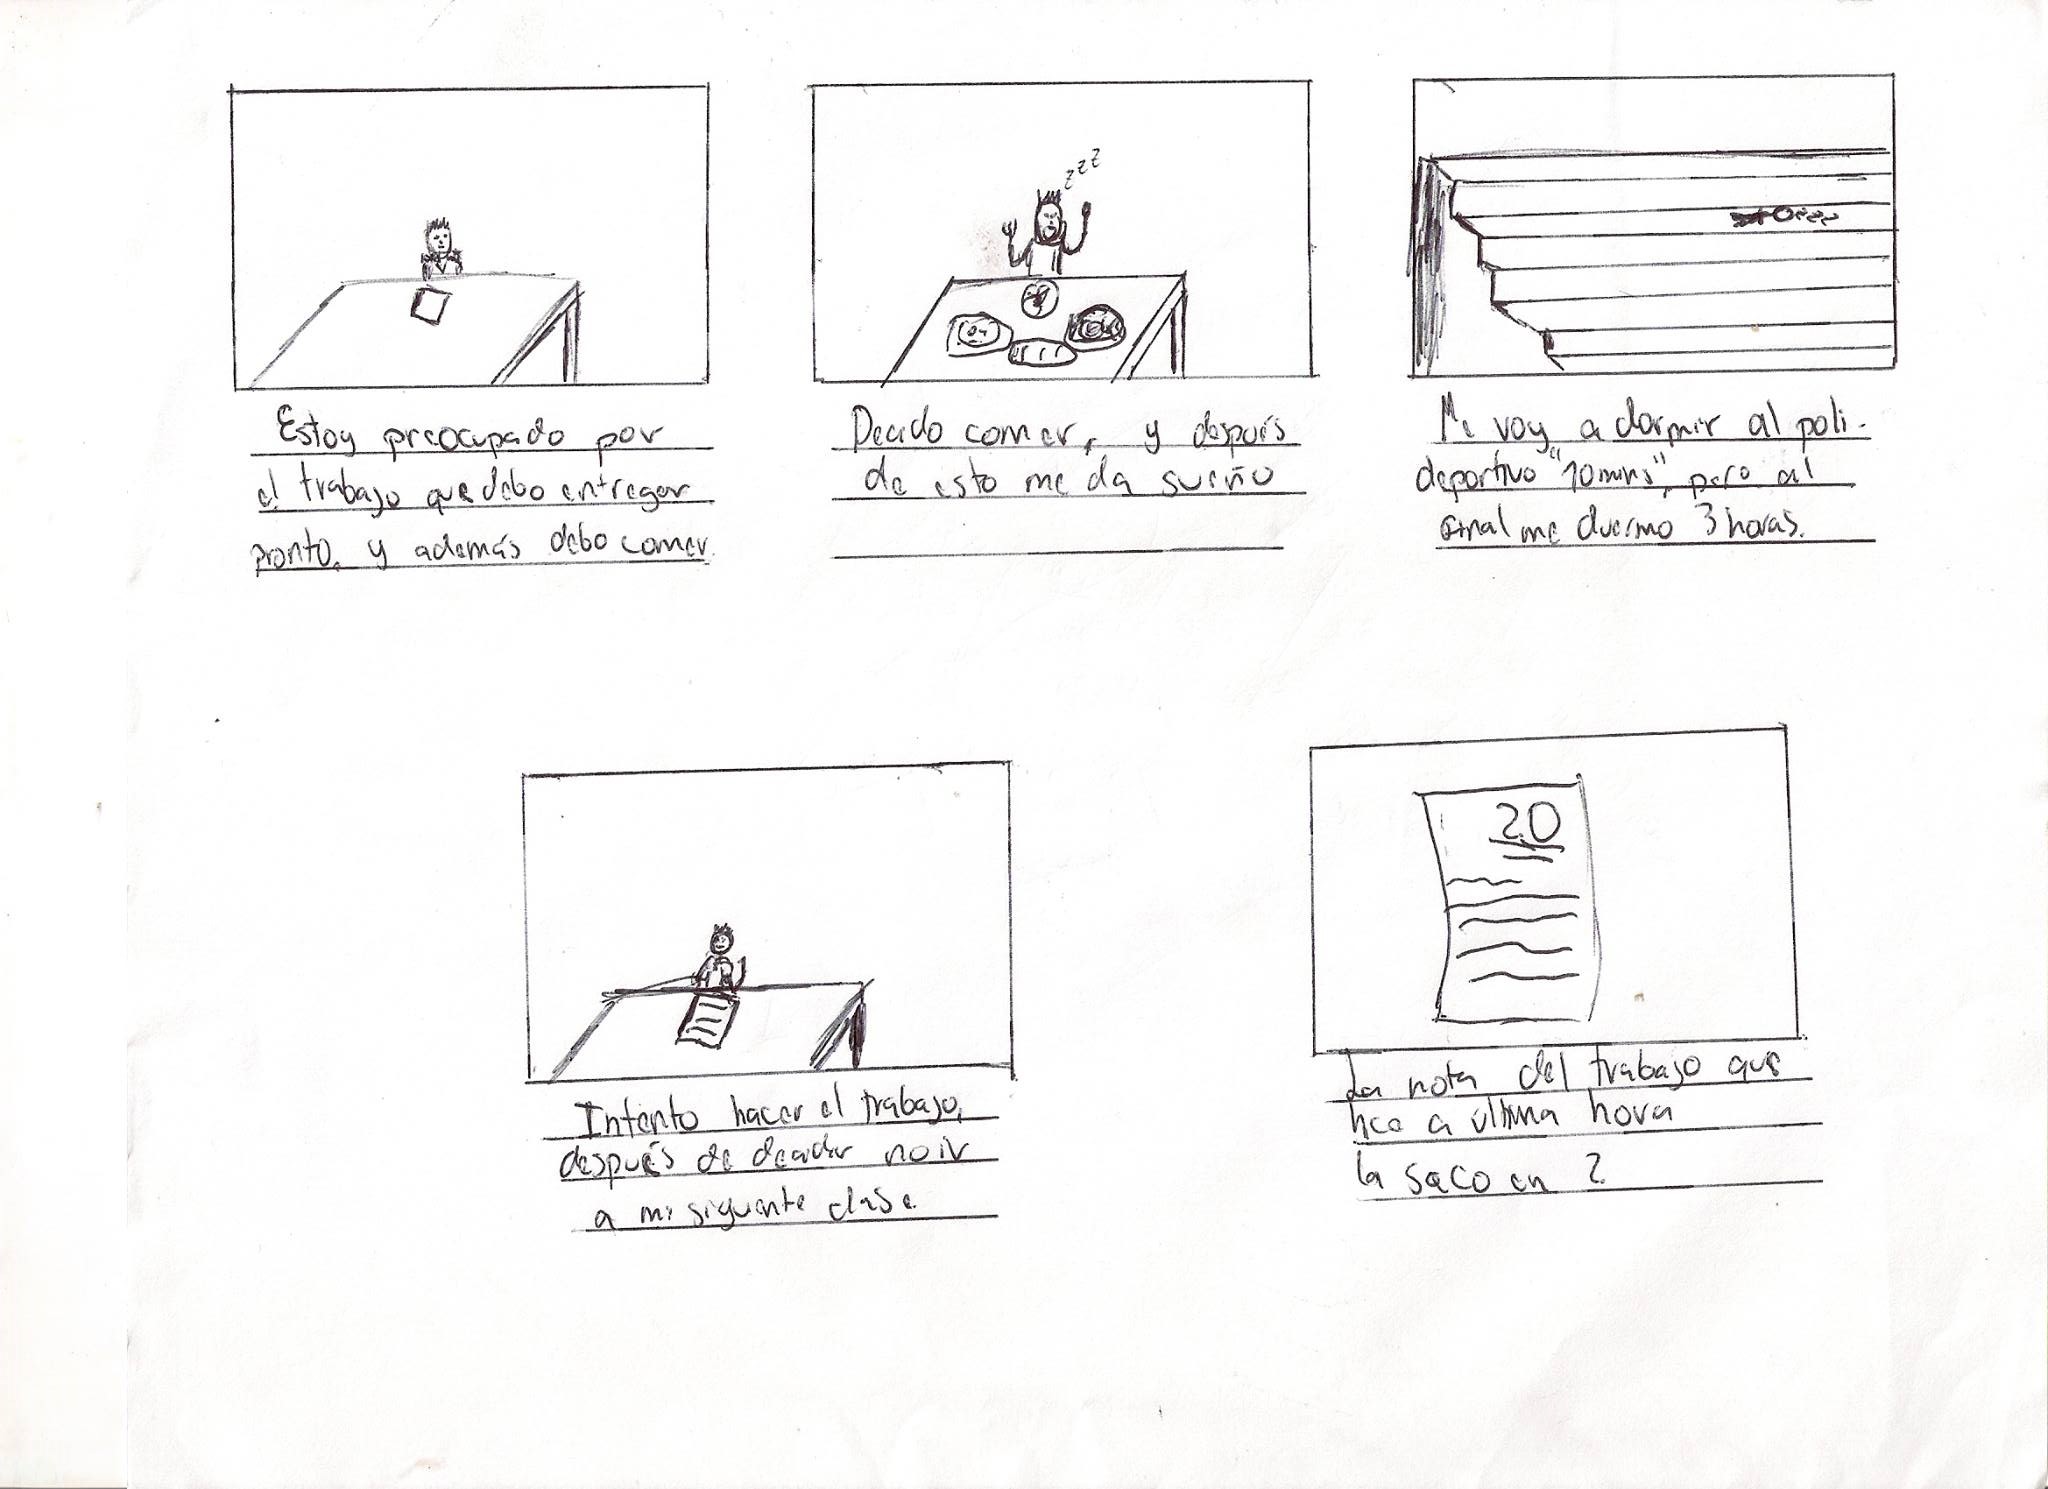 zzz
Estoy preocupado por
el trabajo que debo entregar
pronto, y además debo comer.
Decido comer, y después
de esto me da sueño
Me voy a dormir al poli-
deportivo "10 mins", pero al
final me duermo 3 horas.
Intento hacer el trabajo,
después de decidir no ir
a mi siguiente clase.
2.0
La nota del trabajo que
hce a ultima hora
la saco en 2